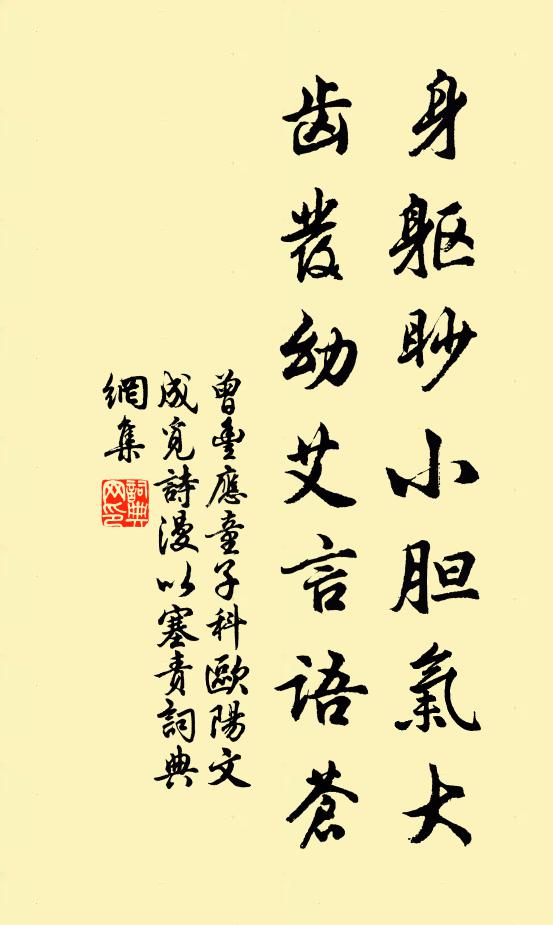 身躯眇小胆氣大
齿發幼艾言語蒼
曾豊應童子科歐陽文
成覓詩漫以塞責詞典
網集
詞典
网印